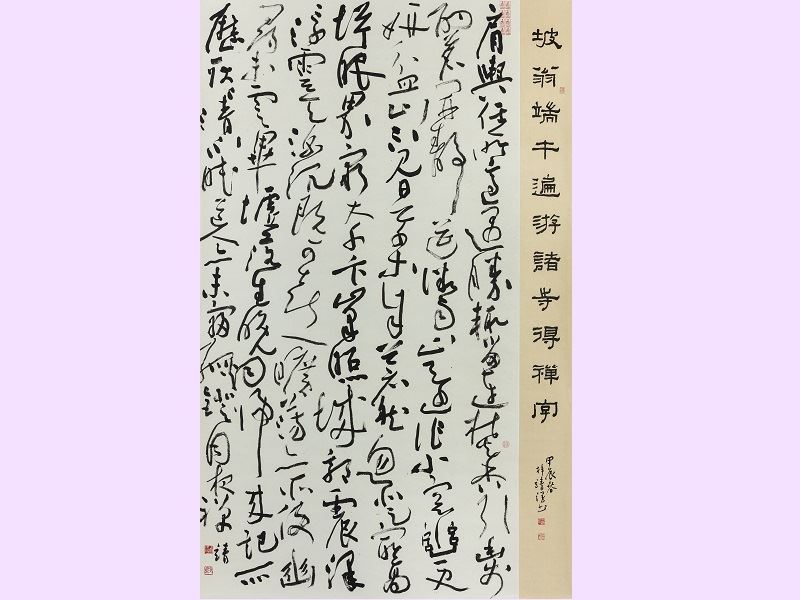 坡翁端午遍游諸寺得禪字
甲辰春
肩輿任所適遇勝輒留連焚香引幽步
酌茗開靜筵微雨止還作小窗幽更
妍盆山不見日草木自蒼然忽登最高
塔眼界窮大千卞峯照城郭震澤
浮雲天深沉既可喜曠蕩亦所便幽
尋未云畢墟落生晚烟歸來記所
歷耿耿清不眠道人亦未寢孤鐙同夜禪
靖